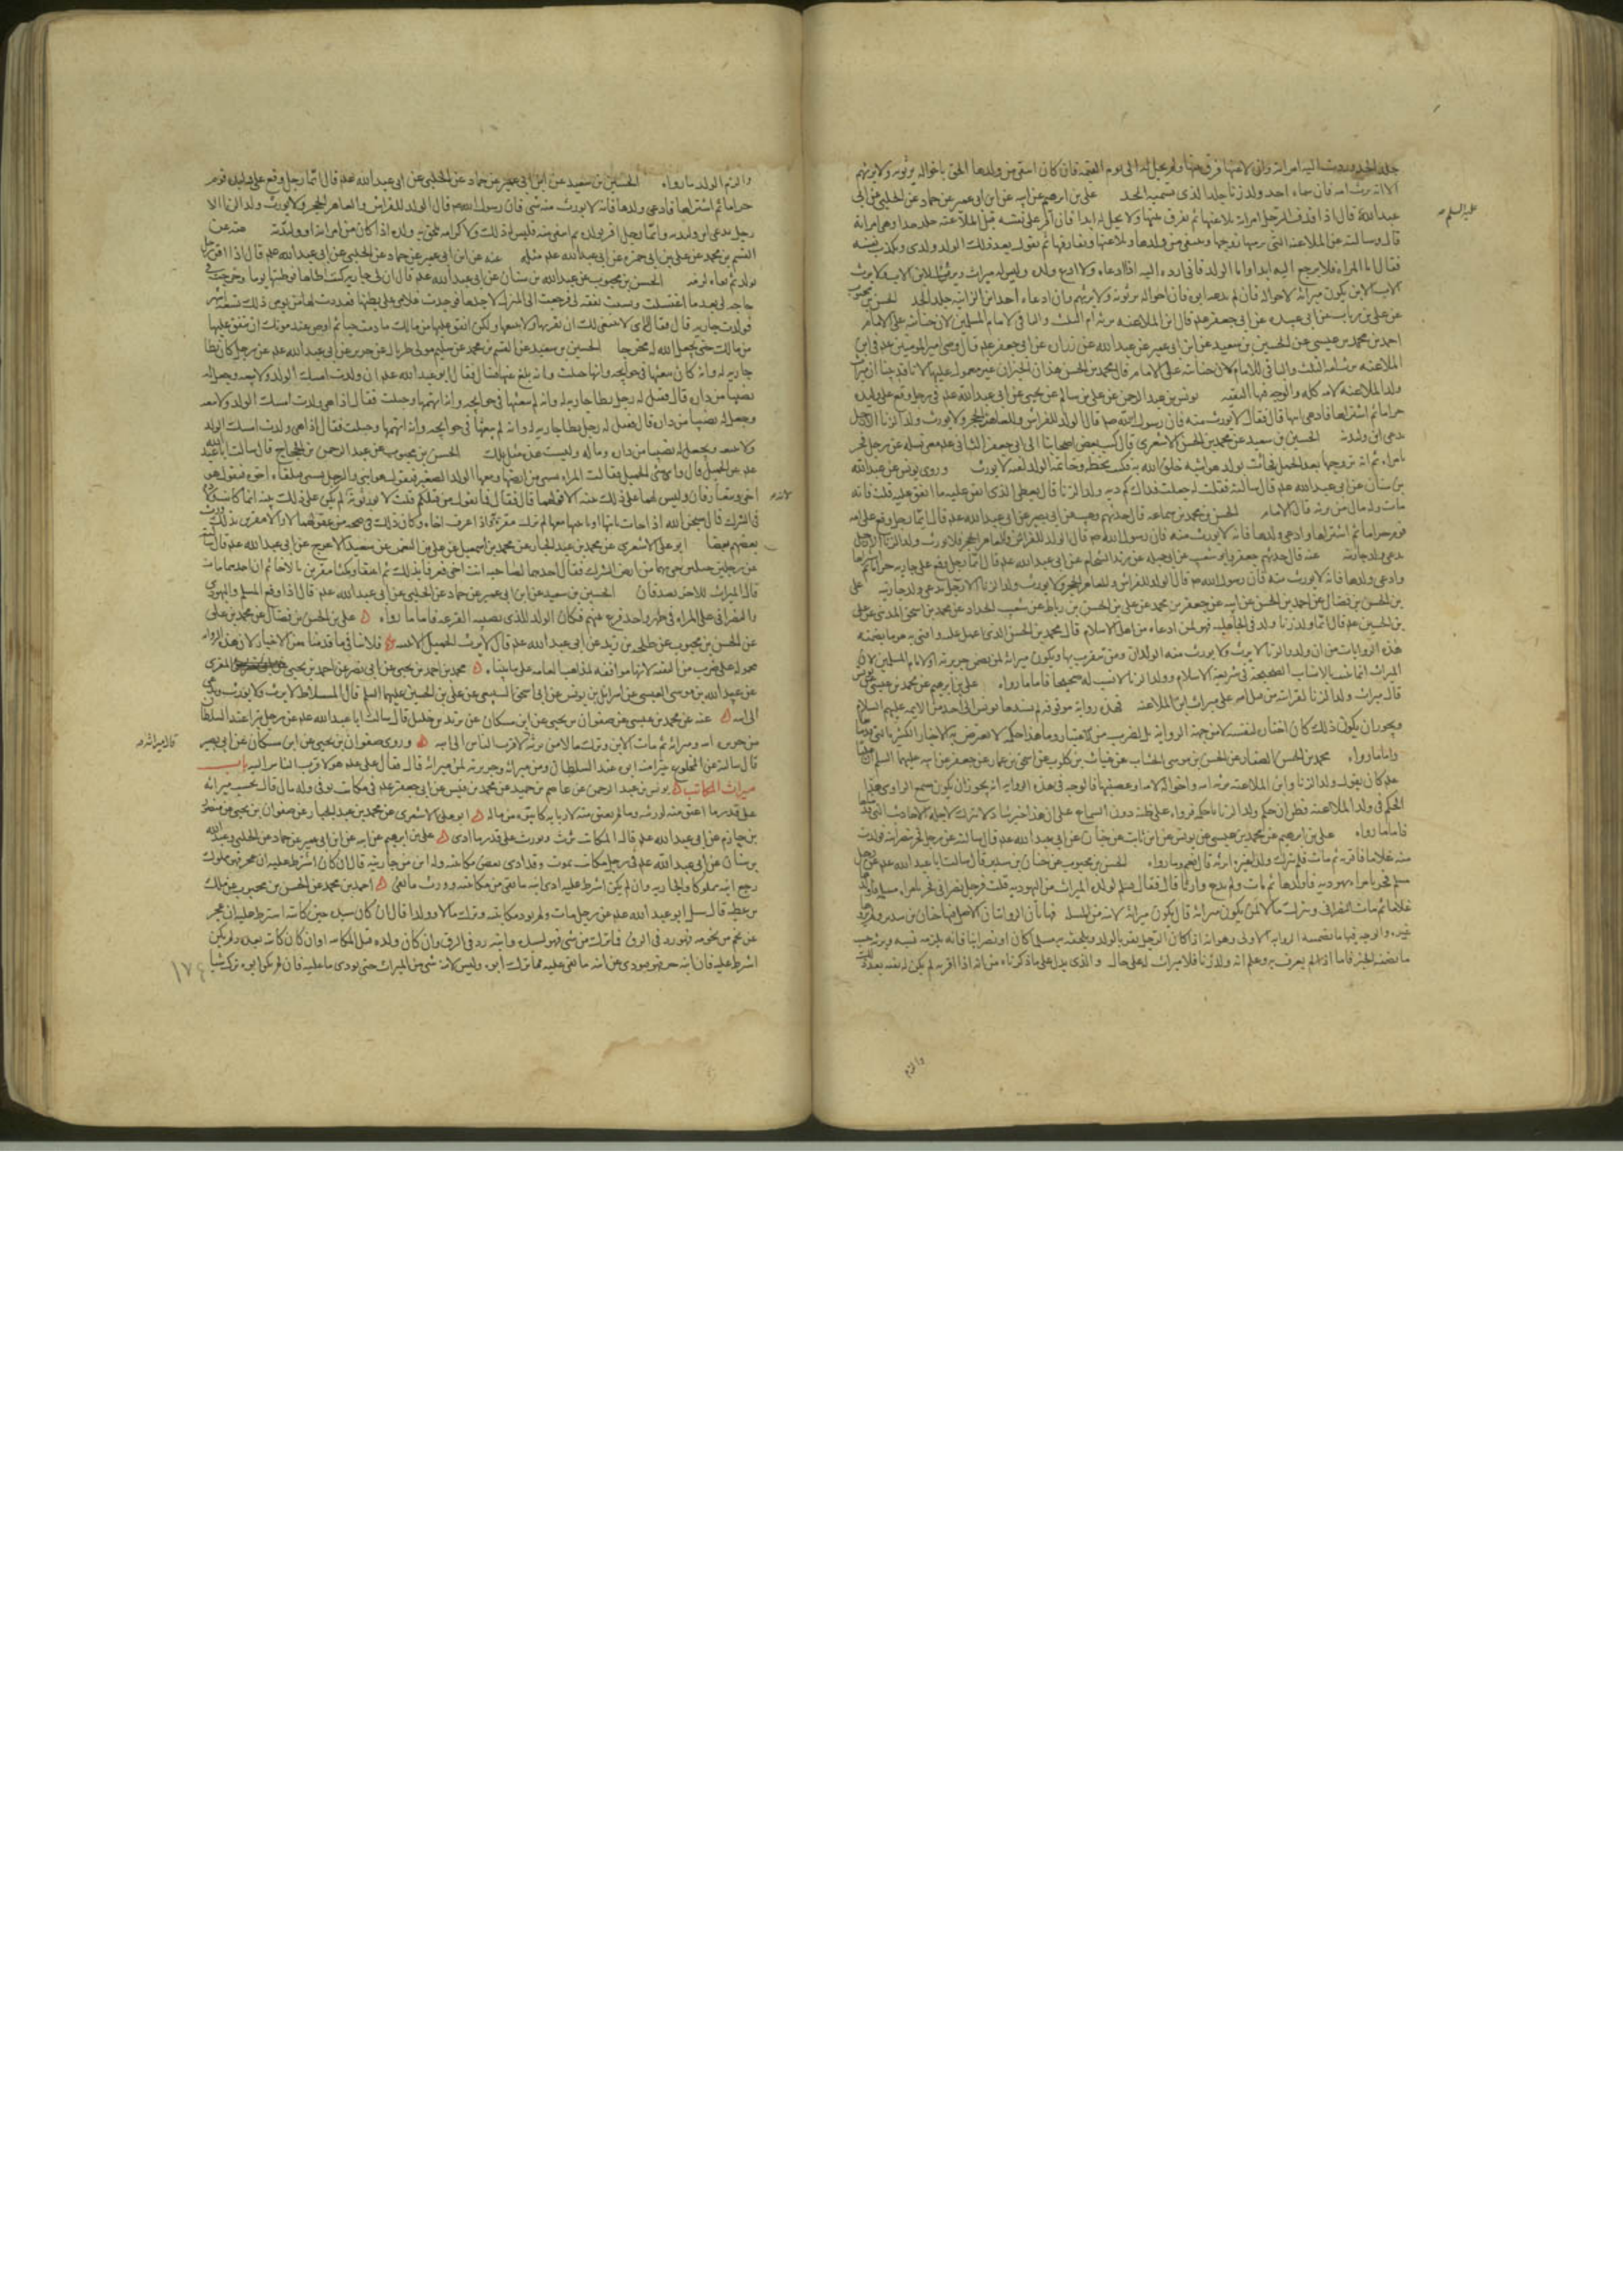 جلد الحد وردت اليه امراته وان لاعنها فرق بينهما ولم يحل له الى يوم القيمة فان كان انتفى من ولدها الحق باخواله يرثونه ولا يرثهم
الا انه يرث امه فان سماه احد ولد زنا جلد الذى يسميه الحد علي بن ابرهيم عن ابيه عن ابن ابى عمير عن حماد عن الحلبي عن ابي
عليه السلم
عبد الله قال اذا قذف الرجل امراته يلاعنها ثم يفرق بينهما ولا يحل له ابدا فان اقر على نفسه قبل الملاعنة جلد حدا وهى امراته
قال وسالته عن الملاعنة التي يرميها زوجها وينتفى من ولدها ويلاعنها ويفارقها ثم يقول بعد ذلك الولد ولدى ويكذب نفسه
فقال اما المراة فلا يرجع اليه ابدا واما الولد فانى ارده اليه اذا ادعاه ولا ادع ولده وليس له ميراث ويرث الابن الاب ولا يرث
الاب الابن يكون ميراثه لاخواله فان لم يدعه ابوه فان اخواله يرثونه ولا يرثهم وان دعاه احد ابن الزانية جلد الحد الحسن بن محبوب
عن علي بن رياب عن ابى عبيده عن ابى جعفر عم قال ابن الملاعنه ترثه امه الثلث والباقى لامام المسلمين لان جنايته على الامام
احمد بن محمد بن عيسى عن الحسين بن سعيد عن ابن ابى عمير عن عبد الله عن زراره عن ابى جعفر عم قال قضى امير المومنين عم فى ابن
الملاعنه ترثه امه الثلث والباقى للامام لان جنايته على الامام قال محمد بن الحسن هذان الخبران غير معمول عليهما لانا قد بينا ان ميراث
ولد الملاعنة لامه كله والوجه فيهما التقيه يونس بن عبد الرحمن عن علي بن سالم عن يحيى عن ابى عبد الله عم فى رجل وقع على وليدة
حراما ثم اشتراها فادعى ابنها قال فقال لا يورث منه فان رسول الله ص قال الولد للفراش وللعاهر الحجر ولا يورث ولد الزنا الا رجل
يدعى ابن وليدته الحسين بن سعيد عن محمد بن الحسن الاشعرى قال كتب بعض اصحابنا الى ابى جعفر الثانى عم معى يساله عن رجل فجر
بامراة ثم انه تزوجها بعد الحمل فجائت بولد هو اشبه خلق الله به فكتب بخطه وخاتمه الولد لغيه لا يورث وروى يونس عن عبد الله
بن سنان عن ابى عبد الله عم قال سالته فقلت له جعلت فداك كم دية ولد الزنا قال يعطى الذى انفق عليه ما انفق عليه قلت فانه
مات وله مال من يرثه قال الامام الحسن بن محمد بن سماعه قال حدثهم وهيب عن ابى بصير عن ابى عبد الله عم قال ايما رجل وقع على امة
قوم حراما ثم اشتراها وادعى ولدها فانه لا يورث منه فان رسول الله ص قال الولد للفراش وللعاهر الحجر ولا يورث ولد الزنا الا رجل
يدعى ولد جاريته عنه قال حدثهم جعفر وابو شعيب عن ابى جميله عن زيد الشحام عن ابى عبد الله عم قال ايما رجل وقع على جاريه حراما ثم اشتراها
وادعى ولدها فانه لا يورث منه فان رسول الله ص قال الولد للفراش وللعاهر الحجر ولا يورث ولد الزنا الا رجل يدعى ولد جاريته علي
بن الحسن بن فضال عن احمد بن الحسن عن ابيه عن جعفر بن محمد عن علي بن الحسن بن رباط عن شعيب الحداد عن محمد بن اسحق المدنى عن علي
بن الحسين عم قال ايما ولد زنا ولد فى الجاهليه فهو لمن ادعاه من اهل الاسلام قال محمد بن الحسن الذى اعمل عليه وافتى به هو ما تضمنه
هذه الروايات من ان ولد الزنا لا يرث ولا يورث منه الوالدان ومن يتقرب بهما ويكون ميراثه لمن يضمن جريرته او لامام المسلمين لان
الميراث انما يثبت بالانساب الصحيحة فى شريعة الاسلام وولد الزنا لا نسب له صحيحا فاما ما رواه علي بن ابرهيم عن محمد بن عيسى عن يونس
قال ميراث ولد الزنا لقرابته من قبل امه على ميراث ابن الملاعنه فهذه رواية موقوفه لم يسندها يونس الى احد من الائمه عليهم السلام
ويجوز ان يكون ذلك كان اختاره لنفسه لا من جهة الرواية بل لضرب من الاعتبار وما هذا حكمه لا يعترض به الاخبار الكثيرة التى قدمناها
واما ما رواه محمد بن الحسن الصفار عن الحسن بن موسى الخشاب عن غياث بن كلوب عن اسحق بن عمار عن جعفر عن ابيه عليهما السلم ان عليا
عم كان يقول ولد الزنا وابن الملاعنه ترثه امه واخواله لامه او عصبتها فالوجه فى هذه الرواية انه يجوز ان يكون سمع الراوى هذا
الحكم فى ولد الملاعنه فظن ان حكم ولد الزنا حكمه فرواه على ظنه دون السماع على ان هذا خبر شاذ لا يترك لاجله الاحاديث التى قدمناها
فاما ما رواه علي بن ابرهيم عن محمد بن عيسى عن يونس عن ابن ثابت عن حنان عن ابى عبد الله عم قال سالته عن رجل فجر بنصرانية فولدت
منه غلاما فاقر به ثم مات فلم يترك ولدا غيره ايرثه قال نعم وما رواه الحسن بن محبوب عن حنان بن سدير قال سالت ابا عبد الله عم عن رجل
مسلم فجر بامراة يهودية فاولدها ثم مات ولم يدع وارثا قال فقال يسلم لولده الميراث من اليهودية قلت فرجل نصرانى فجر بامراة مسلمة فاولدها
غلاما ثم مات النصرانى وترك مالا لمن يكون ميراثه قال يكون ميراثه لابنه من المسلمة فهاتان الروايتان الاصل فيهما حنان بن سدير ولم يروهما
غيره والوجه فيهما ما تضمنه الرواية الاولى وهو انه اذا كان الرجل يقر بالولد ويلحقه به مسلما كان او نصرانيا فانه يلزمه نسبه ويرثه حسب
ما تضمنه الخبر فاما اذا لم يعرف به وعلم انه ولد زنا فلا ميراث له على حال والذى يدل على ما ذكرناه من انه اذا اقر به لم يكن له نفيه بعد ذلك
والزم
والزم الولد ما رواه الحسين بن سعيد عن ابن ابى عمير عن حماد عن الحلبي عن ابى عبد الله عم قال ايما رجل وقع على وليدة قوم
حراما ثم اشتراها فادعى ولدها فانه لا يورث منه شى فان رسول الله ص قال الولد للفراش وللعاهر الحجر ولا يورث ولد الزنا الا
رجل يدعى ابن وليدته وايما رجل اقر بولده ثم انتفى منه فليس له ذلك ولا كرامة يلحق به ولده اذا كان من امراته او وليدته عنه عن
القسم بن محمد عن علي بن ابى حمزه عن ابى عبد الله عم مثله عنه عن ابن ابى عمير عن حماد عن الحلبي عن ابى عبد الله عم قال اذا اقر رجل
بولد ثم نفاه لزمه الحسن بن محبوب عن عبد الله بن سنان عن ابى عبد الله عم قال ان لى جارية كنت اطاها فوطئتها يوما وخرجت فى
حاجه لى بعد ما اغتسلت ونسيت نفقة لى فرجعت الى المنزل لاخذها فوجدت غلامى على بطنها فعددت لها من يومى ذلك تسعة اشهر
فولدت جاريه قال فقال لى لا ينبغى لك ان تقربها ولا تبيعها ولكن انفق عليها من مالك ما دمت حيا ثم اوص عند موتك ان ينفق عليها
من مالك حتى يجعل الله لها مخرجا الحسين بن سعيد عن القسم بن محمد عن سليم مولى طربال عن حريز عن ابى عبد الله عم عن رجل كان يطا
جارية له وانه كان يبعثها فى حوائجه وانها حبلت وانه بلغه عنها فساد فقال ابو عبد الله عم ان ولدت امسك الولد ولا يبعه ويجعل له
نصيبا من داره قال فقيل له رجل يطا جارية له وانه لم يبعثها فى حوائجه وانه اتهمها وحبلت فقال اذا هى ولدت امسك الولد ولا يبعه
ويجعل له نصيبا من داره قال فقيل له رجل يطا جارية له وانه لم يبعثها فى حوائجه وانه اتهمها وحبلت فقال اذا هى ولدت امسك الولد
ولا يبعه ويجعل له نصيبا من داره وماله وليست هذه مثل تلك الحسن بن محبوب عن عبد الرحمن بن الحجاج قال سالت ابا عبد الله
عم عن الحميل قال واى شى الحميل فقالت المراة تسبى من ارضها ومعها الولد الصغير فتقول هو ابنى والرجل يسبى فيلقاه اخوه فيقول هو
اخى ويتعارفان وليس لهما على ذلك بينه الا قولهما قال فقال فما يقول من قبلكم قلت لا يورثونه لم يكن على ذلك بينه انما كانت ولادة
لانه
فى الشرك قال سبحان الله اذا جاءت بابنها او بابنتها معها لم تزل مقرة واذا عرف اخاه وكان ذلك فى صحة من عقولهما لا يزالان مقرين بذلك ورث
بعضهم بعضا ابو علي الاشعرى عن محمد بن عبد الجبار عن محمد بن اسمعيل عن علي بن النعمن عن سعيد الاعرج عن ابى عبد الله عم قال سالته
عن رجلين حميلين جى بهما من ارض الشرك فقال احدهما لصاحبه انت اخى فعرفا بذلك ثم اعتقا ومكثا مقرين بالاخاء ثم ان احدهما مات
قال الميراث للاخ يصدقان الحسين بن سعيد عن ابن ابى عمير عن حماد عن الحلبي عن ابى عبد الله عم قال اذا وقع المسلم واليهودى
والنصرانى على المراة فى طهر واحد قرع بينهم فكان الولد للذى تصيبه القرعه فاما ما رواه علي بن الحسن بن فضال عن محمد بن علي
عن الحسن بن محبوب عن طلحه بن زيد عن ابى عبد الله عم قال لا يرث الحميل الا ببينه فلا ينافى ما قدمناه من الاخبار لان هذه الرواية
محموله على ضرب من التقيه لانها موافقه لمذاهب العامه على ما بيناه محمد بن احمد بن يحيى عن ابى نصر عن احمد بن يحيى المقرى
عن عبيد الله بن موسى العبسى عن اسرائيل بن يونس عن ابى اسحق السبيعى عن علي بن الحسين عليهما السلم قال المستلاط لا يرث ولا يورث ويدعى
الى ابيه عنه عن محمد بن عيسى عن صفوان بن يحيى عن ابن مسكان عن يزيد بن خليل قال سالت ابا عبد الله عم عن رجل تبرا عند السلطان
من جريرة ابنه وميراثه ثم مات الابن وترك مالا من يرثه لاقرب الناس الى ابيه وروى صفوان بن يحيى عن ابن مسكان عن ابى بصير
قال ميراثه
قال سالته عن المخلوع يتبرا منه ابوه عند السلطان ومن ميراثه وجريرته لمن ميراثه قال فقال علي عم هو لاقرب الناس اليه باب
ميراث المكاتب يونس بن عبد الرحمن عن عاصم بن حميد عن محمد بن قيس عن ابى جعفر عم فى مكاتب توفى وله مال قال يحسب ميراثه
على قدر ما اعتق منه لورثته وما لم يعتق منه لاربابه كاتبوه من ماله ابو علي الاشعرى عن محمد بن عبد الجبار عن صفوان بن يحيى عن منصور
بن حازم عن ابى عبد الله عم قال المكاتب يرث ويورث على قدر ما ادى علي بن ابرهيم عن ابيه عن ابن ابى عمير عن حماد عن الحلبي وعبد الله
بن سنان عن ابى عبد الله عم فى رجل مكاتب يموت وقد ادى بعض مكاتبته وله ابن من جاريته قال ان كان اشترط عليه ان عجز فهو مملوك
رجع ابنه مملوكا والجاريه وان لم يكن اشترط عليه ادى ابنه ما بقى من مكاتبته وورث ما بقى احمد بن محمد عن الحسن بن محبوب عن ملك
بن عطيه قال سئل ابو عبد الله عم عن رجل مات ولم يود مكاتبته وترك مالا وولدا قال ان كان سيده حين كاتبه اشترط عليه ان عجز
عن نجم من نجومه فهو رد فى الرق فما ترك من شى فهو لسيده وابنه رد فى الرق وان كان ولده قبل المكاتبه او ان كان كاتبه بعد ولم يكن
اشترط عليه فان ابنه حر فيودى عن ابيه ما بقى عليه مما ترك ابوه وليس لابنه شى من الميراث حتى يودى ما عليه فان لم يكن ابوه ترك شيا
١٧٤